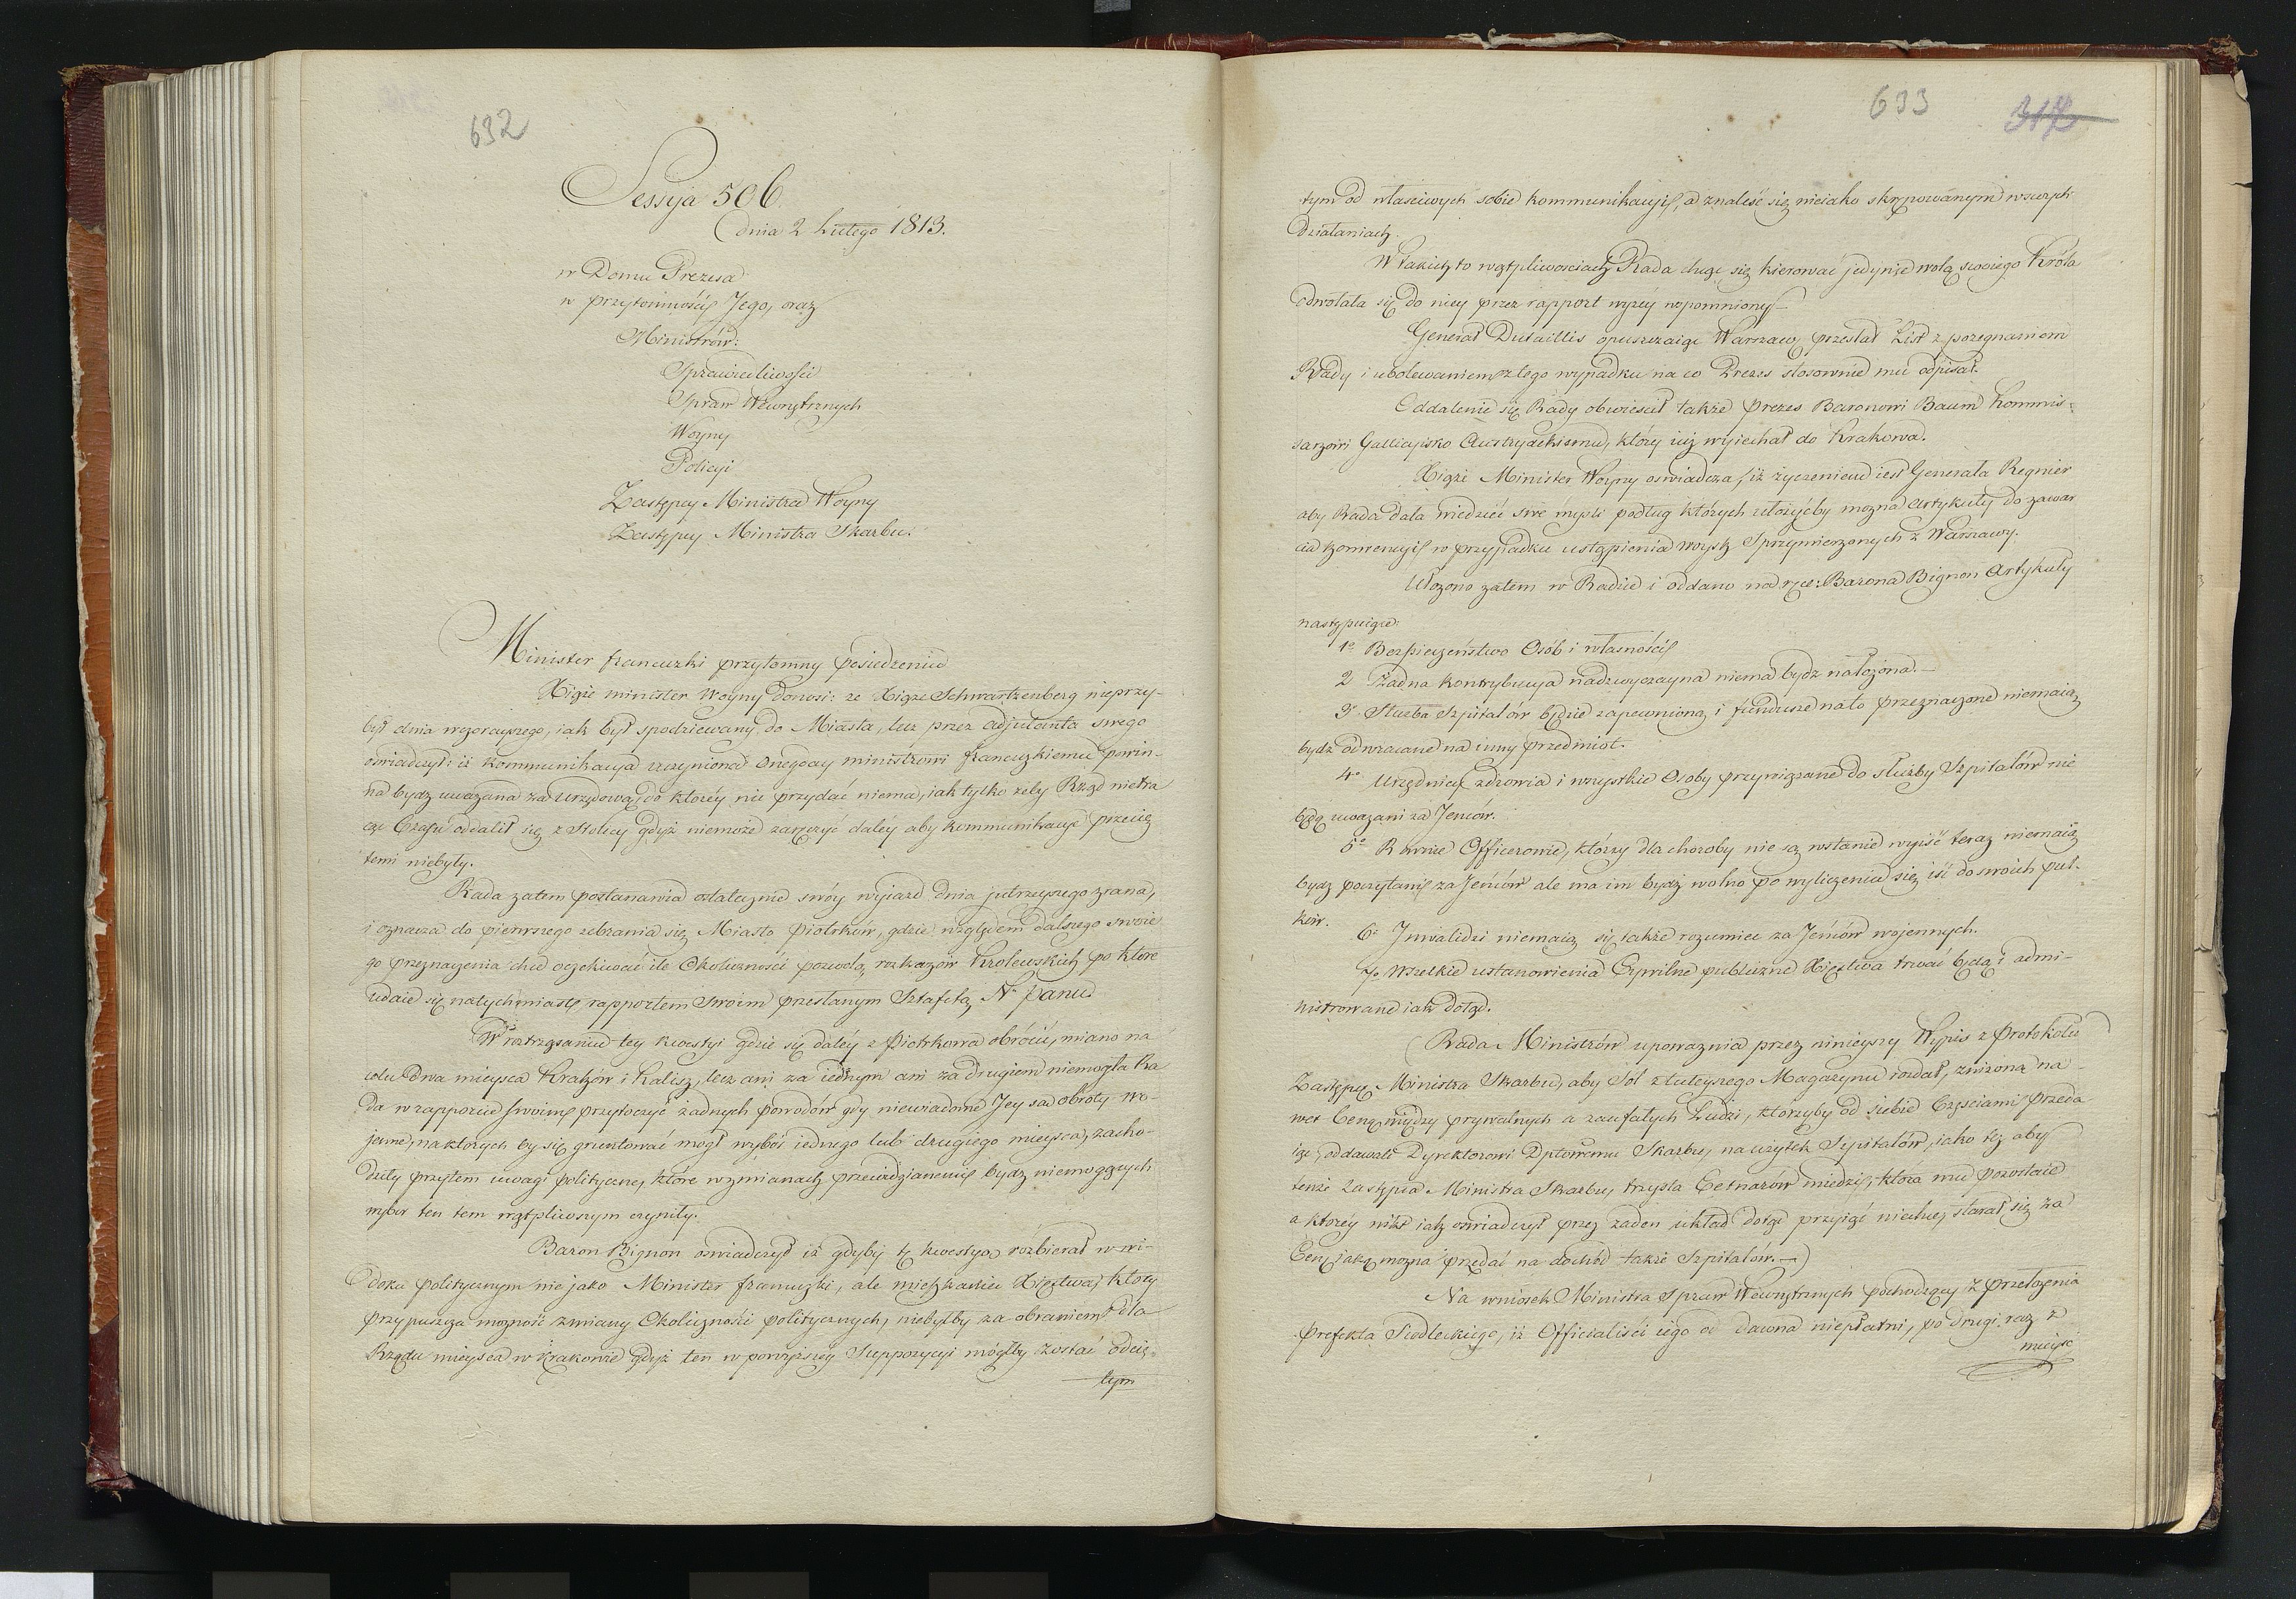 632
Sessyja 506.
dnia 2 Lutego 1813.
w Domu Prezesa
w przytomności Jego, oraz
Ministrów:
Sprawiedliwości
Spraw Wewnętrznych
Woyny
Policyi
Zastępcy Ministra Woyny
Zastępcy Ministra Skarbu.
Minister francuzki przytomny posiedzeniu
Xiąże minister Woyny donosi: że Xiąże Schwartzenberg nieprzy-
był dnia wczorayszego, iak był spodziewany, do Miasta, lecz przez adjutanta swego
oświadczył: iż kommunikacya uczyniona onegday ministrowi francuzkiemu powin-
na bydz uważana za urzędową, do któréy nic przydać niema, iak tylko żeby Rząd nietra
cąc czasu oddalił się z Stolicy gdyż niemoże zaręczyć daléy aby kommunikacye przecię
temi niebyły.
Rada zatem postanawia ostatecznie swóy wyiazd dnia jutrzeyszego zrana,
i oznacza do pierwszego zebrania się Miasto Piotrków, gdzie względem dalszego swoie
go przeznaczenia chce oczekiwać ile Okoliczności pozwolą, rozkazów Królewskich po które
udaie się natychmiast rapportem swoim przesłanym Sztafetą N. Panu.
W roztrząsaniu tey kwestyi gdzie się daléy z Piotrkowa obrócić, miano na
celu dwa mieysca Kraków i Kalisz, lecz ani za iednym ani za drugiem niemogła Ra
da w rapporcie swoim przytoczyć żadnych powodów gdy niewiadome Jey są obroty wo-
jenne, na których by się gruntować mógł wybór iednego lub drugiego mieysca, zacho-
dziły przytem uwagi polityczne, które w zmianach przewidzianemi bydz niemogących
wybor ten tem wątpliwszym czyniły.
Baron Bignon oświadczył iż gdyby tę kwestyą rozbierał w wi-
doku politycznym nie jako Minister francuzki, ale mieszkaniec Xięstwa, który
przypuszcza możność zmiany Okoliczności politycznych, niebyłby za obraniem dla
Rządu mieysca w Krakowie gdyż ten w powyższéy Suppozycyi mógłby zostać odcię
tym
633 317
tym od właściwych sobie kommunikacyi, a znaleść się nieiako skrępowanym w swych
działaniach.
W takich to wątpliwościach Rada chcąc się kierować jedynie wolą swoiego Króla
odwołała się do niey przez rapport wyżéy wspomniony
Generał Dutaillis opuszczaiąc Warszawę przesłał List z pożegnaniem
Rady i ubolewaniem z tego wypadku na co Prezes stosownie mu odpisał.
Oddalenie się Rady obwieścił także Prezes Baronowi Baum Kommis-
sarzowi Galicyjsko Austryackiemu, który iuż wyiechał do Krakowa.
Xiąże Minister Woyny oświadcza, iż życzeniem iest Generała Regnier
aby Rada dała wiedzieć swe myśli podług których ułożyćby można Artykuły do zawar
cia konwencyi w przypadku ustąpienia woysk Sprzymierzonych z Warszawy.
Ułożono zatem w Radzie i oddano na ręce Barona Bignon Artykuły
następuiące:
1o Bezpieczeństwo Osób i własności
2 Żadna kontrybucya nadzwyczayna niema bydz nałożona.
3o Służba Szpitalów będzie zapewnioną i fundusze na to przeznaczone niemaią
bydz odwracane na inny przedmiot.
4o Urzędnicy zdrowia i wszystkie Osoby przywiązane do służby Szpitalów nie
będą uważani za Jeńców.
5o Równie Officerowie, którzy dla choroby nie są w stanie wyiść teraz niemaią
bydz poczytani za Jeńców ale ma im bydź wolno po wyliczeniu się iść do swoich puł-
ków.
6o Inwalidzi niemaią się także rozumieć za Jeńców wojennych.
7o Wszelkie ustanowienia Cywilne publiczne Xięstwa trwać będą i admi-
nistrowane iak dotąd.
(Rada Ministrów upoważnia przez ninieyszy Wypis z Protokołu
Zastępcę Ministra Skarbu, aby Sól z tuteyszego Magazynu rozdał, zniżoną na-
wet Ceną między prywatnych a zaufałych Ludzi, którzyby od siebie Częściami przeda
iąc, oddawali Dyrektorowi Dptowemu Skarbu, na użytek Szpitalów, iako też aby
tenże Zastępca Ministra Skarbu, trzysta Cetnarów miedzi, która mu pozostaie
a któréy nikt iak oświadczył przez żaden układ dotąd przyiąć niechce, starał się za
Cenę jaką można przedać na dochód także Szpitalów.—)
Na wniosek Ministra Spraw Wewnętrznych pochodzący z przełożenia
Prefekta Siedleckiego, iż Officialiści iego od dawna niepłatni, po drugi raz z
mieysc